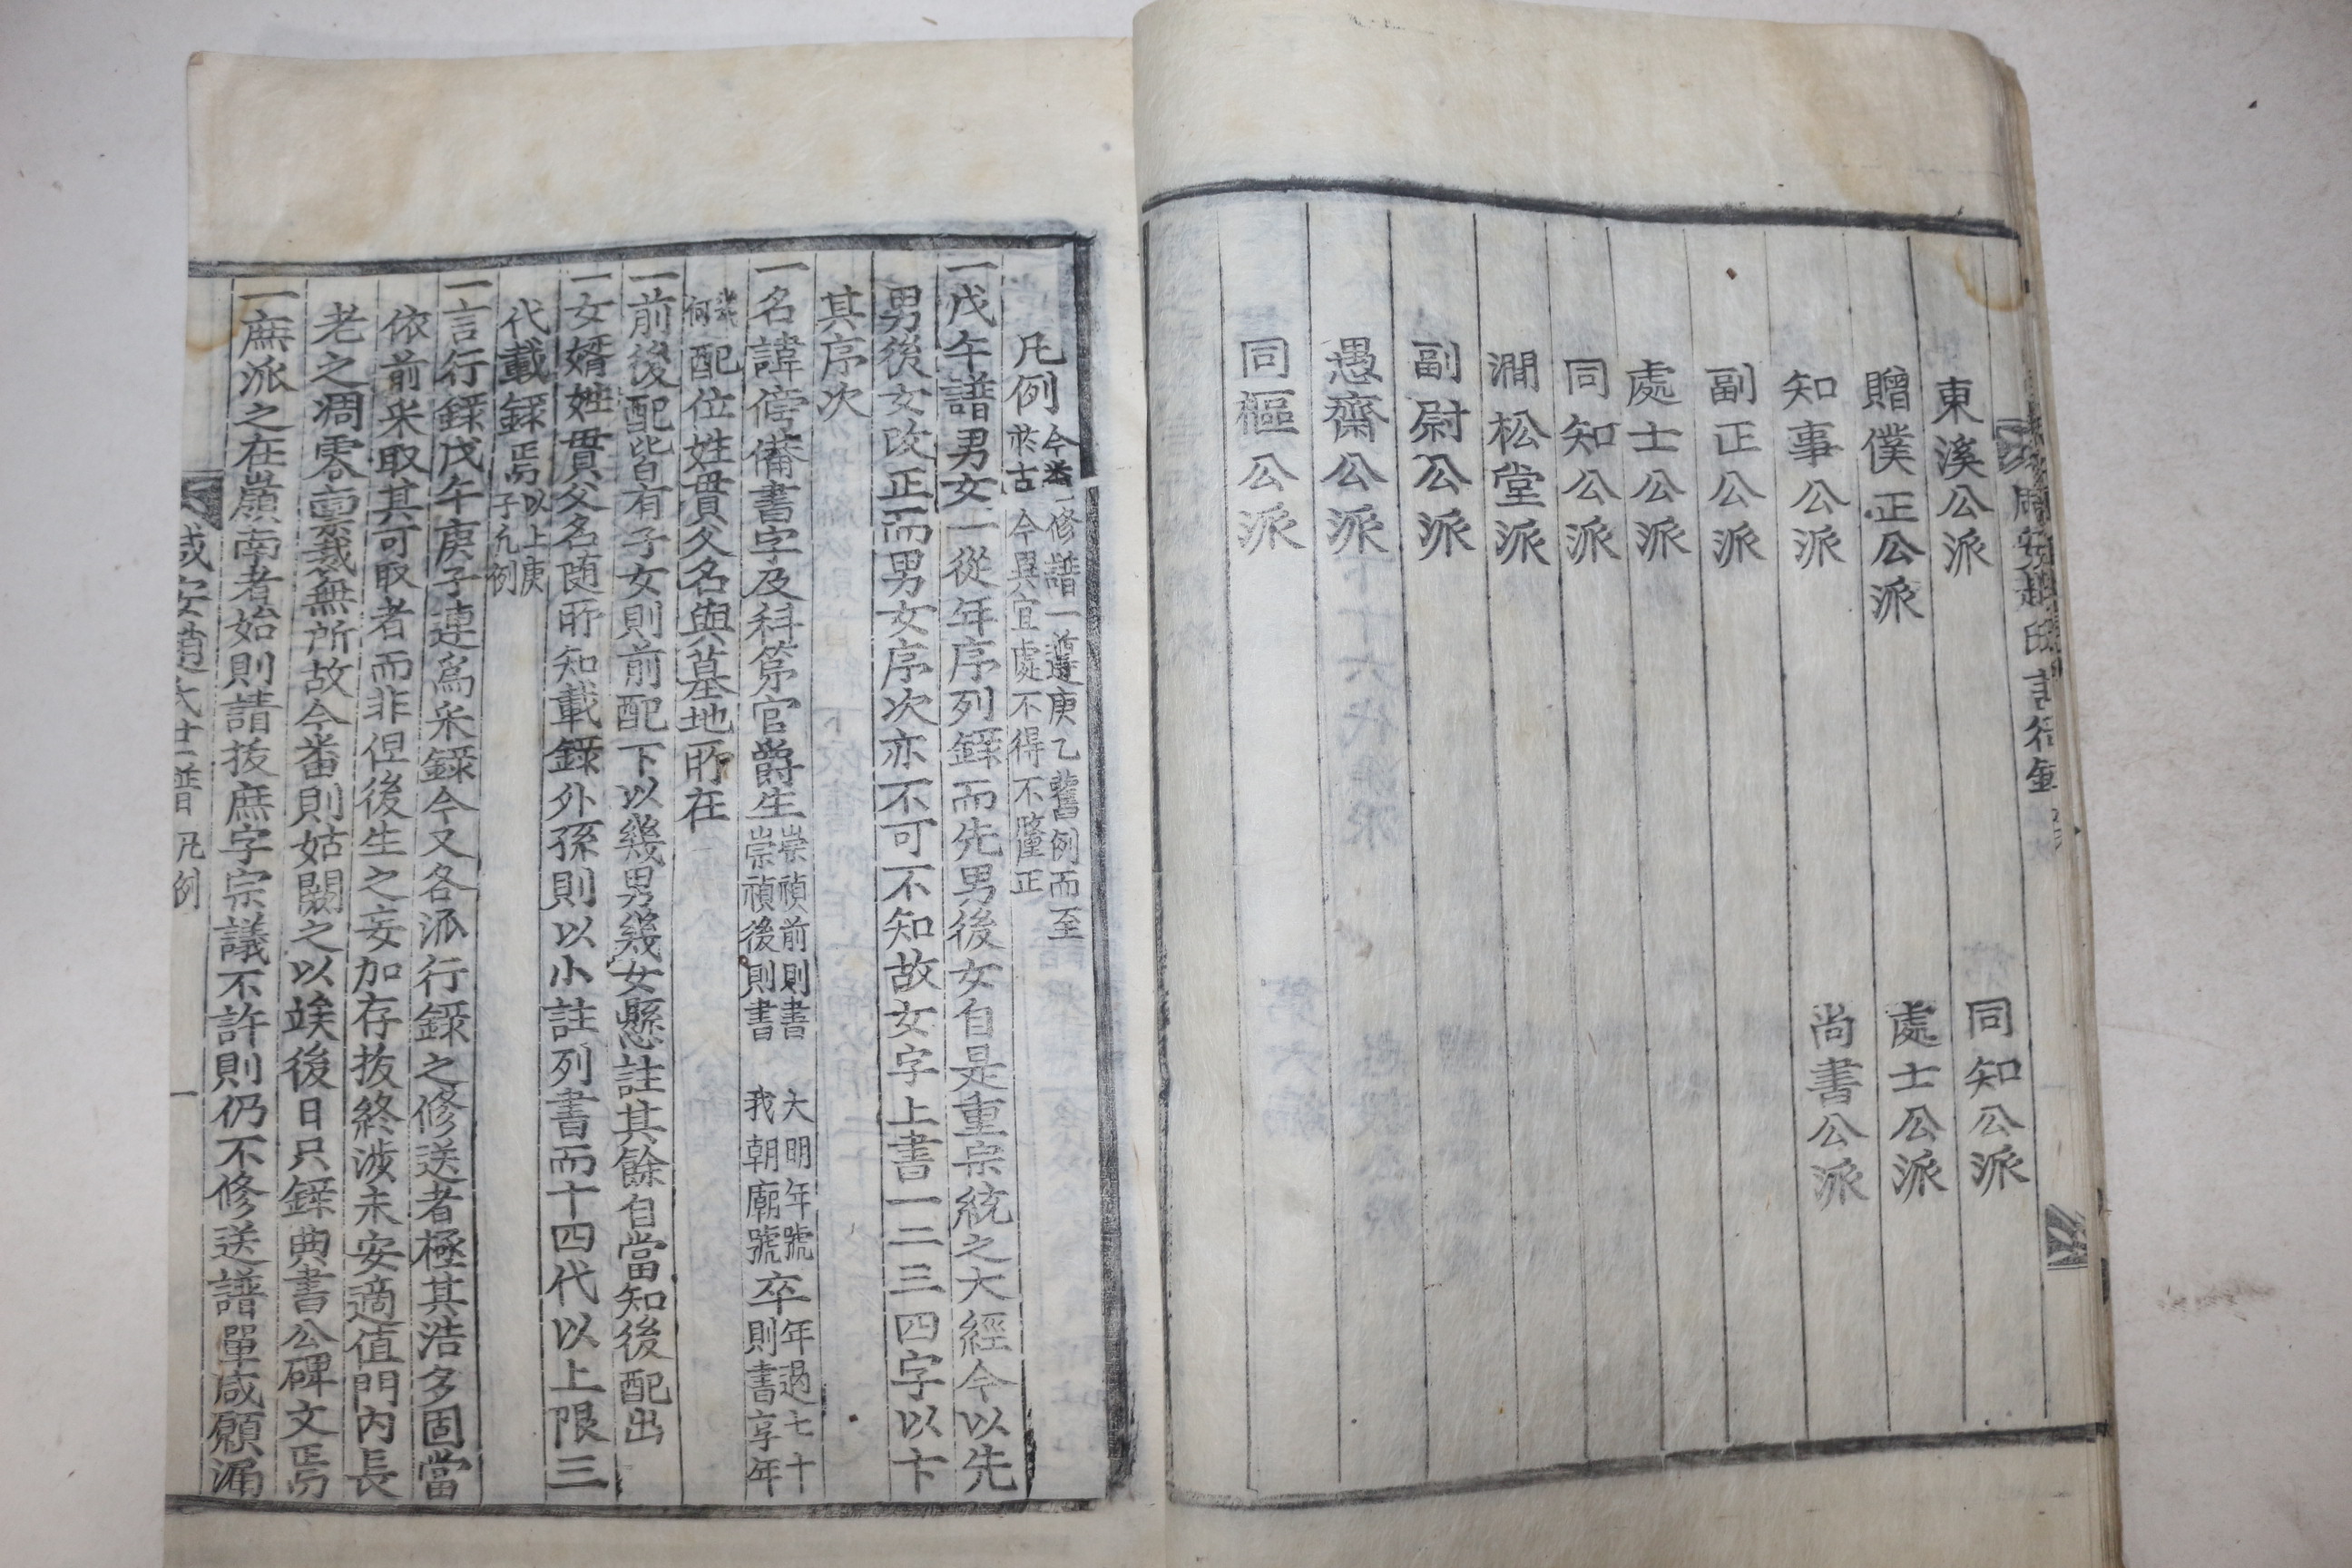 東溪公派 同知公派
贈僕正公派 處士公派
知事公派 尚書公派
副正公派
處士公派
同知公派
澗松堂派
副尉公派
愚齋公派
同樞公派
凡例 今番修譜一遵庚乙舊例而至
於古今異宜處不得不釐正
一戊午譜男女一從年序列錄而先男後女自是重宗統之大經今以先
男後女改正而男女序次亦不可不知故女字上書一二三四字以卞
其序次
一名諱傍備書字及科第官爵生崇禎前則書 大明年號
崇禎後則書 我朝廟號卒則書享年 年過七十
幾何配位姓貫父名與墓地所在
一前後配皆有子女則前配下以幾男幾女懸註其餘自當知後配出
一女婿姓貫父名随所知載錄外孫則以小註列書而十四代以上限三
代載錄焉以上庚子元例
一言行錄戊午庚子連爲采錄今又各派行錄之修送者極其浩多固當
依前采取其可取者而非但後生之妄加存拔終涉未安適值門內長
老之凋零稟裁無所故今番則姑闕之以竢後日只錄典書公碑文焉
一庶派之在嶺南者始則請拔庶字宗議不許則仍不修送譜單咸願漏
咸安趙氏世譜 凡例 一